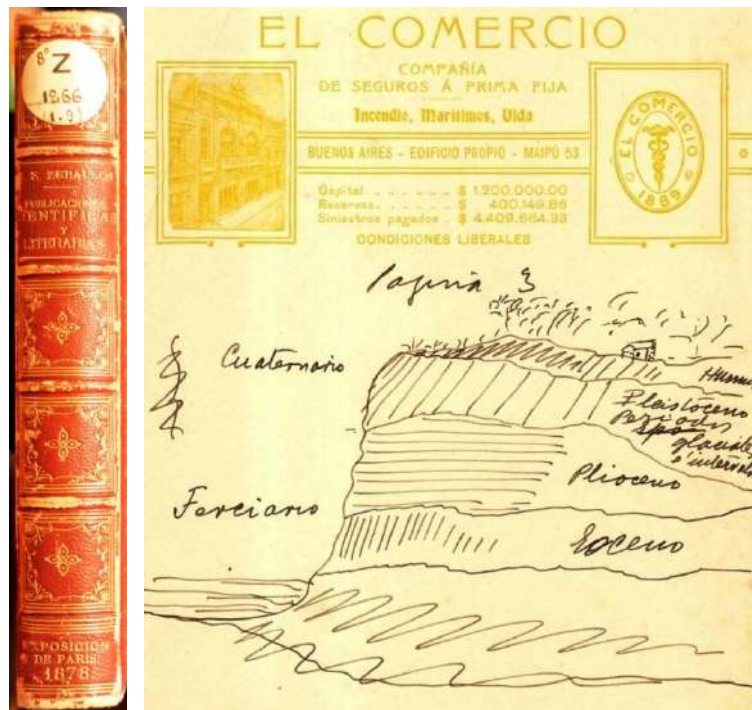 8º
Z
1266
(1-9)
S. ZEBALLOS
PUBLICACIONES
CIENTIFICAS
Y
LITERARIAS
EXPOSICION
DE PARIS
1878
EL COMERCIO
COMPAÑÍA
DE SEGUROS Á PRIMA FIJA
Incendio, Marítimos, Vida
BUENOS AIRES - EDIFICIO PROPIO - MAIPÚ 53
Capital . . . . . . $ 1.200.000.00
Reservas . . . . . $ 400.149.86
Siniestros pagados . $ 4.409.664.33
CONDICIONES LIBERALES
EL COMERCIO
1889
Pagina 3
Cuaternario
Humus
Pleistoceno
glaciale
Plioceno
Terciario
Eoceno